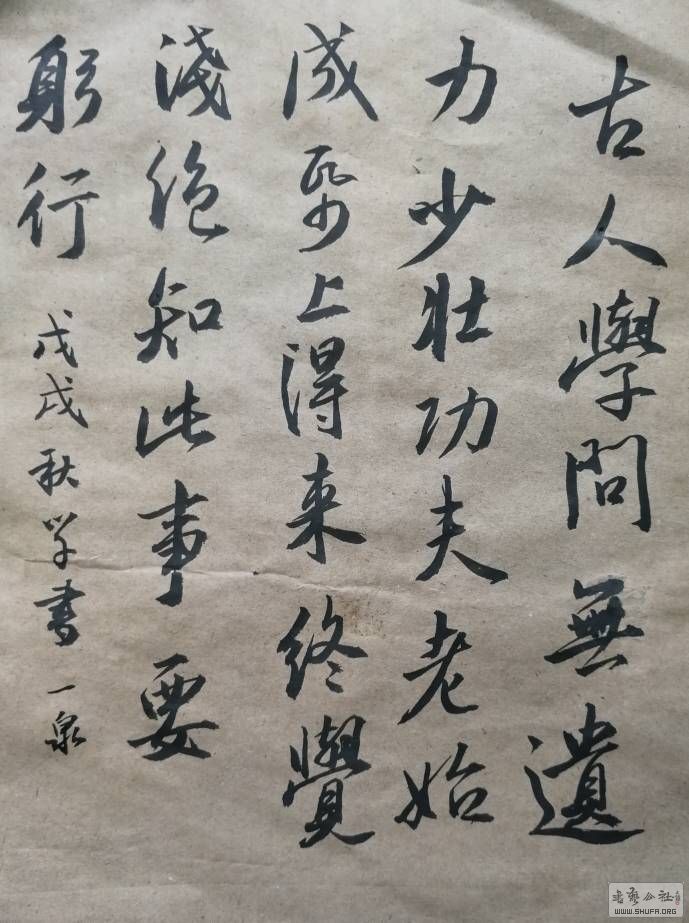 古人學問無遺
力少壯功夫老始
成紙上得来終覺
淺絕知此事要
躬行
戊戌秋学書 一泉
書藝公社
WWW.SHUFA.ORG